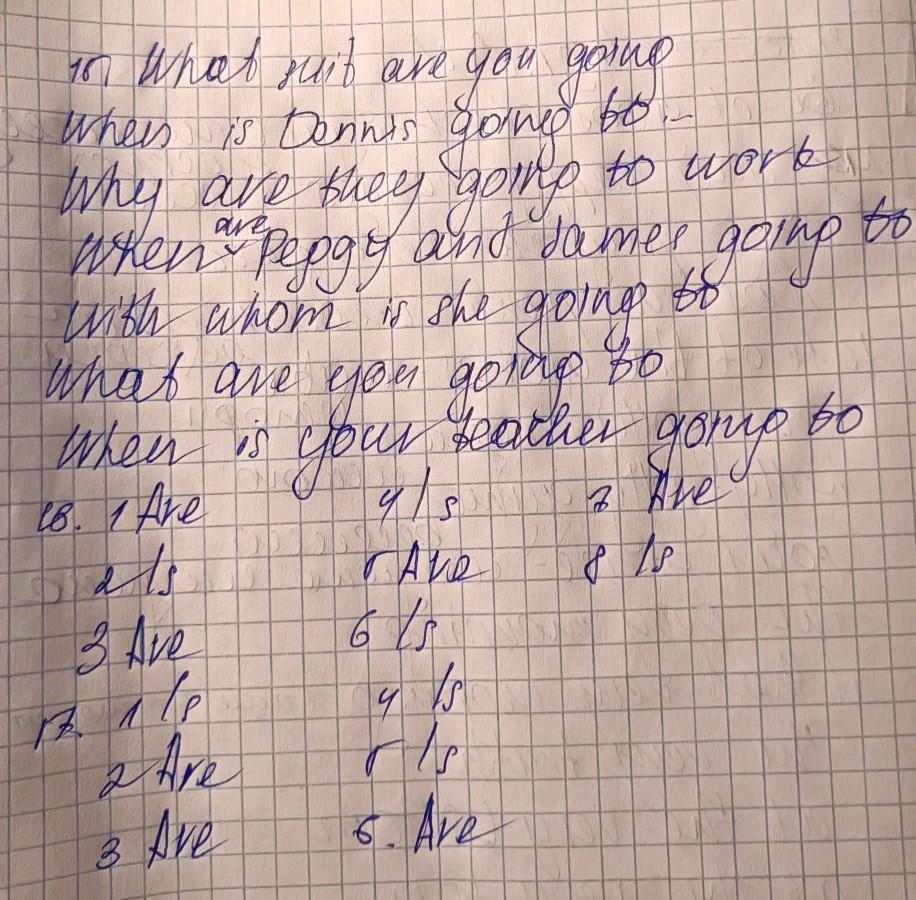 15. What suit are you going
When is Dennis going to...
Why are they going to work
When are Peggy and James going to
With whom is she going to
What are you going to
When is your teacher going to
16. 1 Are 4 Is 7 Are
2 Is 5 Are 8 Is
3 Are 6 Is
17. 1 Is 4 Is
2 Are 5 Is
3 Are 6. Are